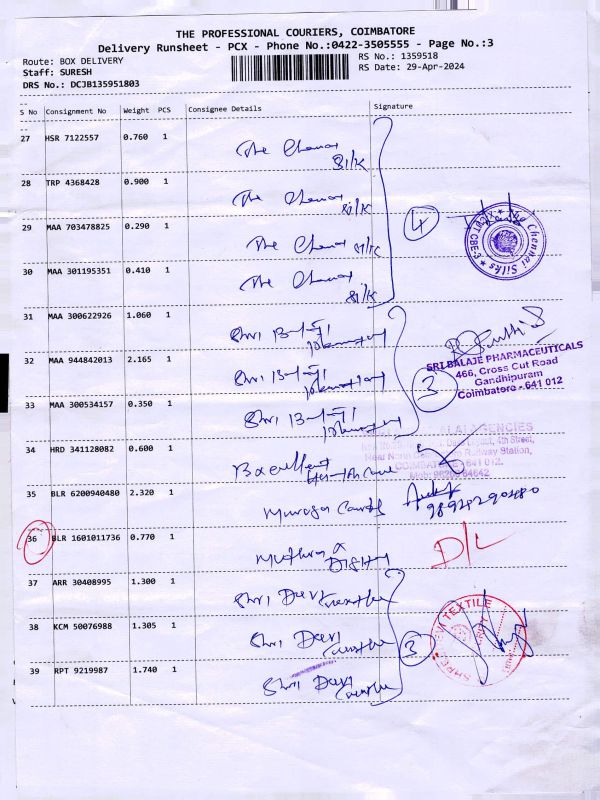 THE PROFESSIONAL COURIERS, COIMBATORE
Delivery Runsheet - PCX - Phone No.:0422-3505555 - Page No.:3
Route: BOX DELIVERY
RS No.: 1359518
Staff: SURESH
RS Date: 29-Apr-2024
DRS No.: DCJB135951803
S No Consignment No Weight PCS Consignee Details Signature
27 HSR 7122557 0.760 1
The Chennai
Silk
28 TRP 4368428 0.900 1
The Chennai
Silk
4
29 MAA 703478825 0.290 1
The Chennai Silk
Chennai Silks
30 MAA 301195351 0.410 1
The Chennai
Silk
31 MAA 300622926 1.060 1
Shri Balaji
32 MAA 944842013 2.165 1
Shri Balaji
SRI BALAJE PHARMACEUTICALS
466, Cross Cut Road
Gandhipuram
Coimbatore - 641 012
3
33 MAA 300534157 0.350 1
Shri Balaji
AGENCIES
4th Street,
Railway Station,
COIMBATORE - 641 012.
34 HRD 341128082 0.600 1
35 BLR 6200940480 2.320 1
36 BLR 1601011736 0.770 1
D/L
37 ARR 30408995 1.300 1
Shri Devi
38 KCM 50076988 1.305 1
Shri Devi
3
TEXTILE
39 RPT 9219987 1.740 1
Shri Devi